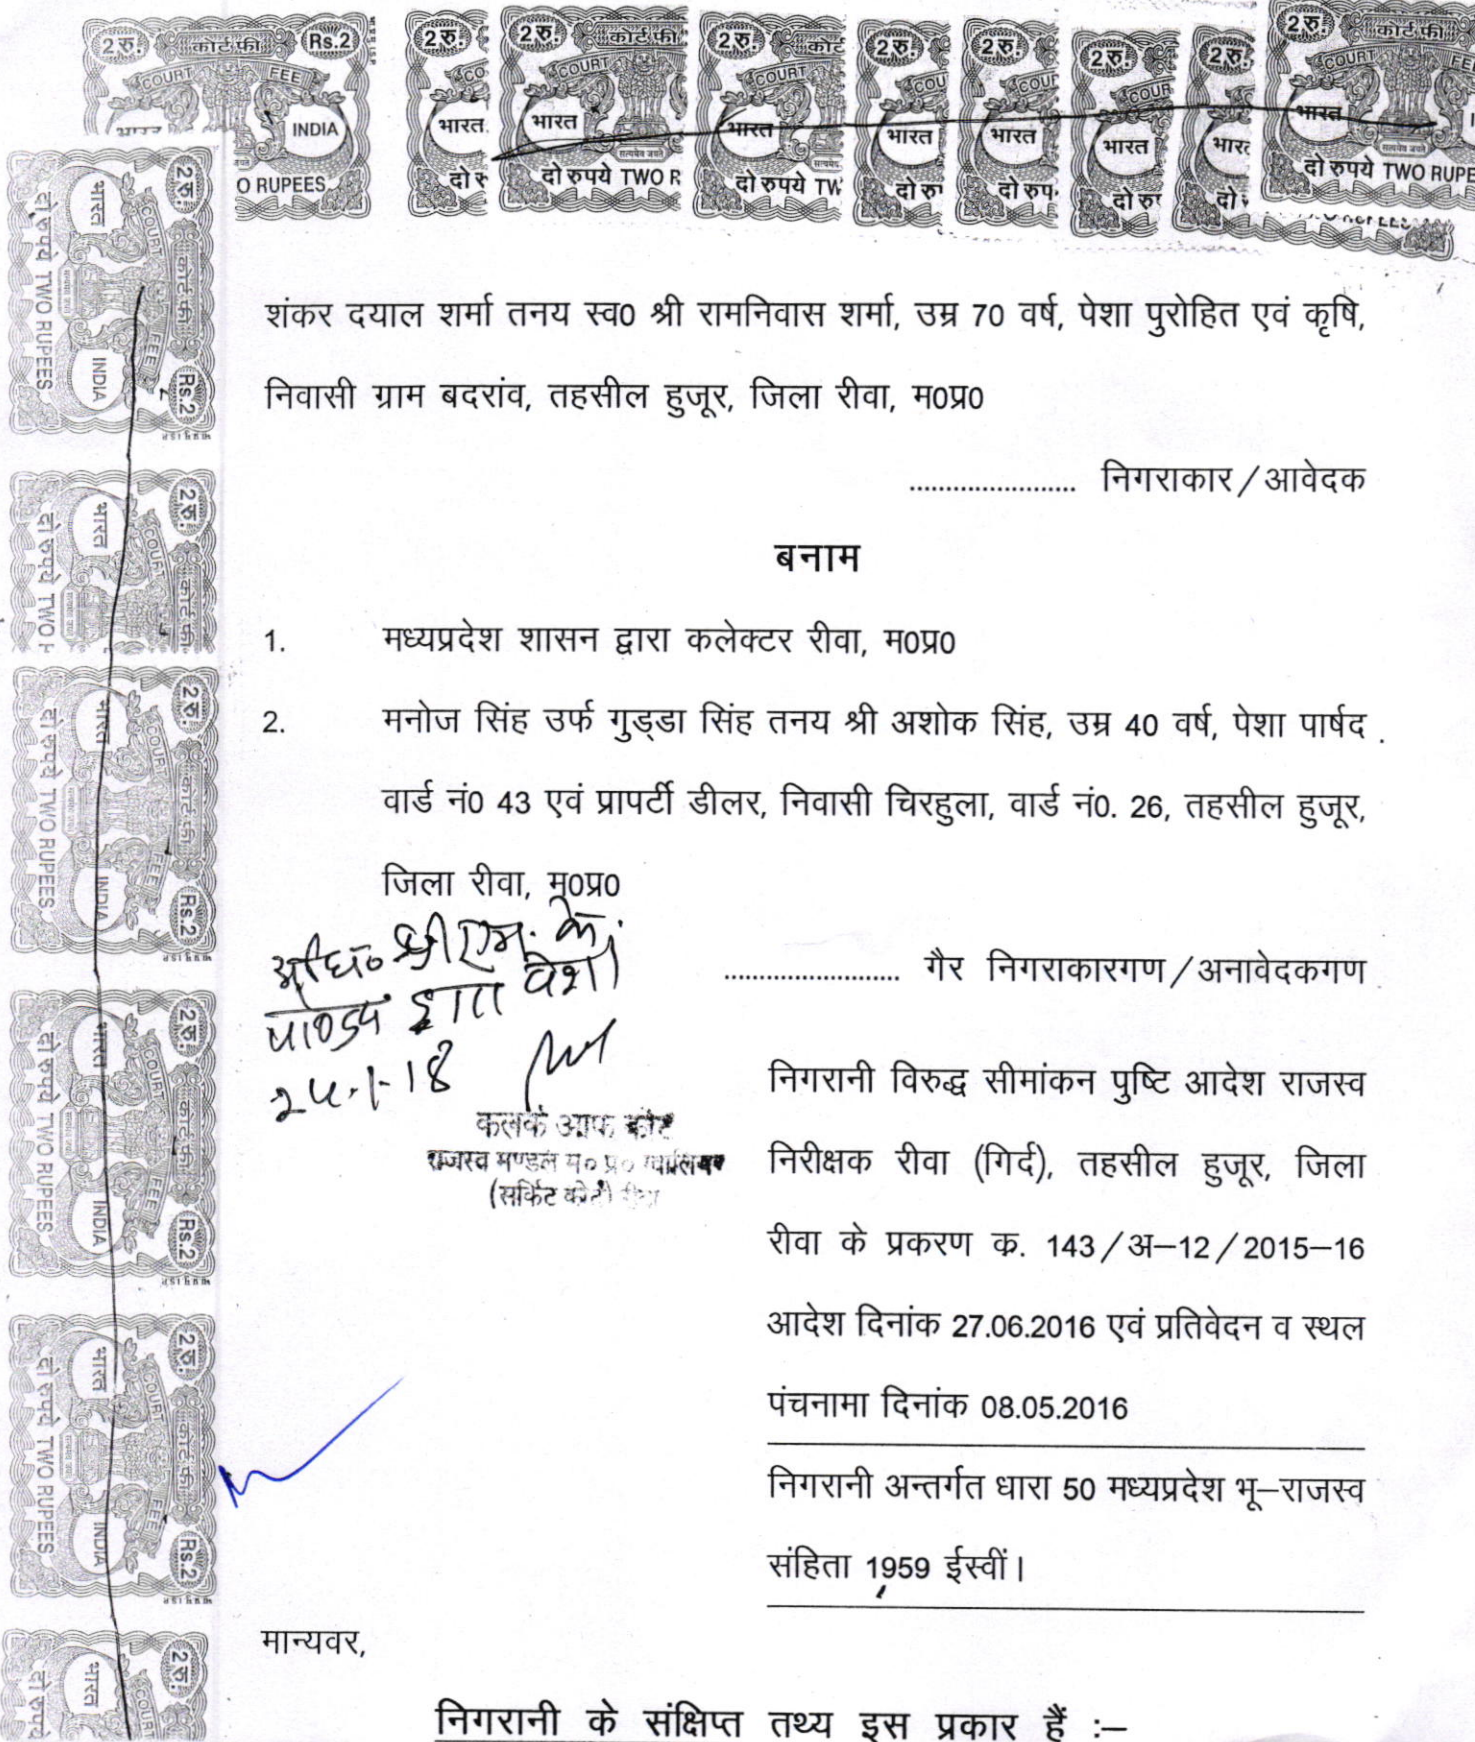 2रु. कोर्ट फी Rs.2
COURT FEE
भारत INDIA
दो रुपये TWO RUPEES
शंकर दयाल शर्मा तनय स्व0 श्री रामनिवास शर्मा, उम्र 70 वर्ष, पेशा पुरोहित एवं कृषि,
निवासी ग्राम बदरांव, तहसील हुजूर, जिला रीवा, म0प्र0
....................... निगराकार/आवेदक
बनाम
1. मध्यप्रदेश शासन द्वारा कलेक्टर रीवा, म0प्र0
2. मनोज सिंह उर्फ गुड्डा सिंह तनय श्री अशोक सिंह, उम्र 40 वर्ष, पेशा पार्षद
वार्ड नं0 43 एवं प्रापर्टी डीलर, निवासी चिरहुला, वार्ड नं0. 26, तहसील हुजूर,
जिला रीवा, म0प्र0
अधि० श्री एम. के.
पाण्डेय द्वारा पेश
24.1.18
........................ गैर निगराकारगण/अनावेदकगण
क्लर्क आफ कोर्ट
राजस्व मण्डल म० प्र० ग्वालियर
(सर्किट कोर्ट) रीवा
निगरानी विरुद्ध सीमांकन पुष्टि आदेश राजस्व
निरीक्षक रीवा (गिर्द), तहसील हुजूर, जिला
रीवा के प्रकरण क. 143/अ–12/2015–16
आदेश दिनांक 27.06.2016 एवं प्रतिवेदन व स्थल
पंचनामा दिनांक 08.05.2016
निगरानी अन्तर्गत धारा 50 मध्यप्रदेश भू–राजस्व
संहिता 1959 ईस्वीं।
मान्यवर,
निगरानी के संक्षिप्त तथ्य इस प्रकार हैं :–